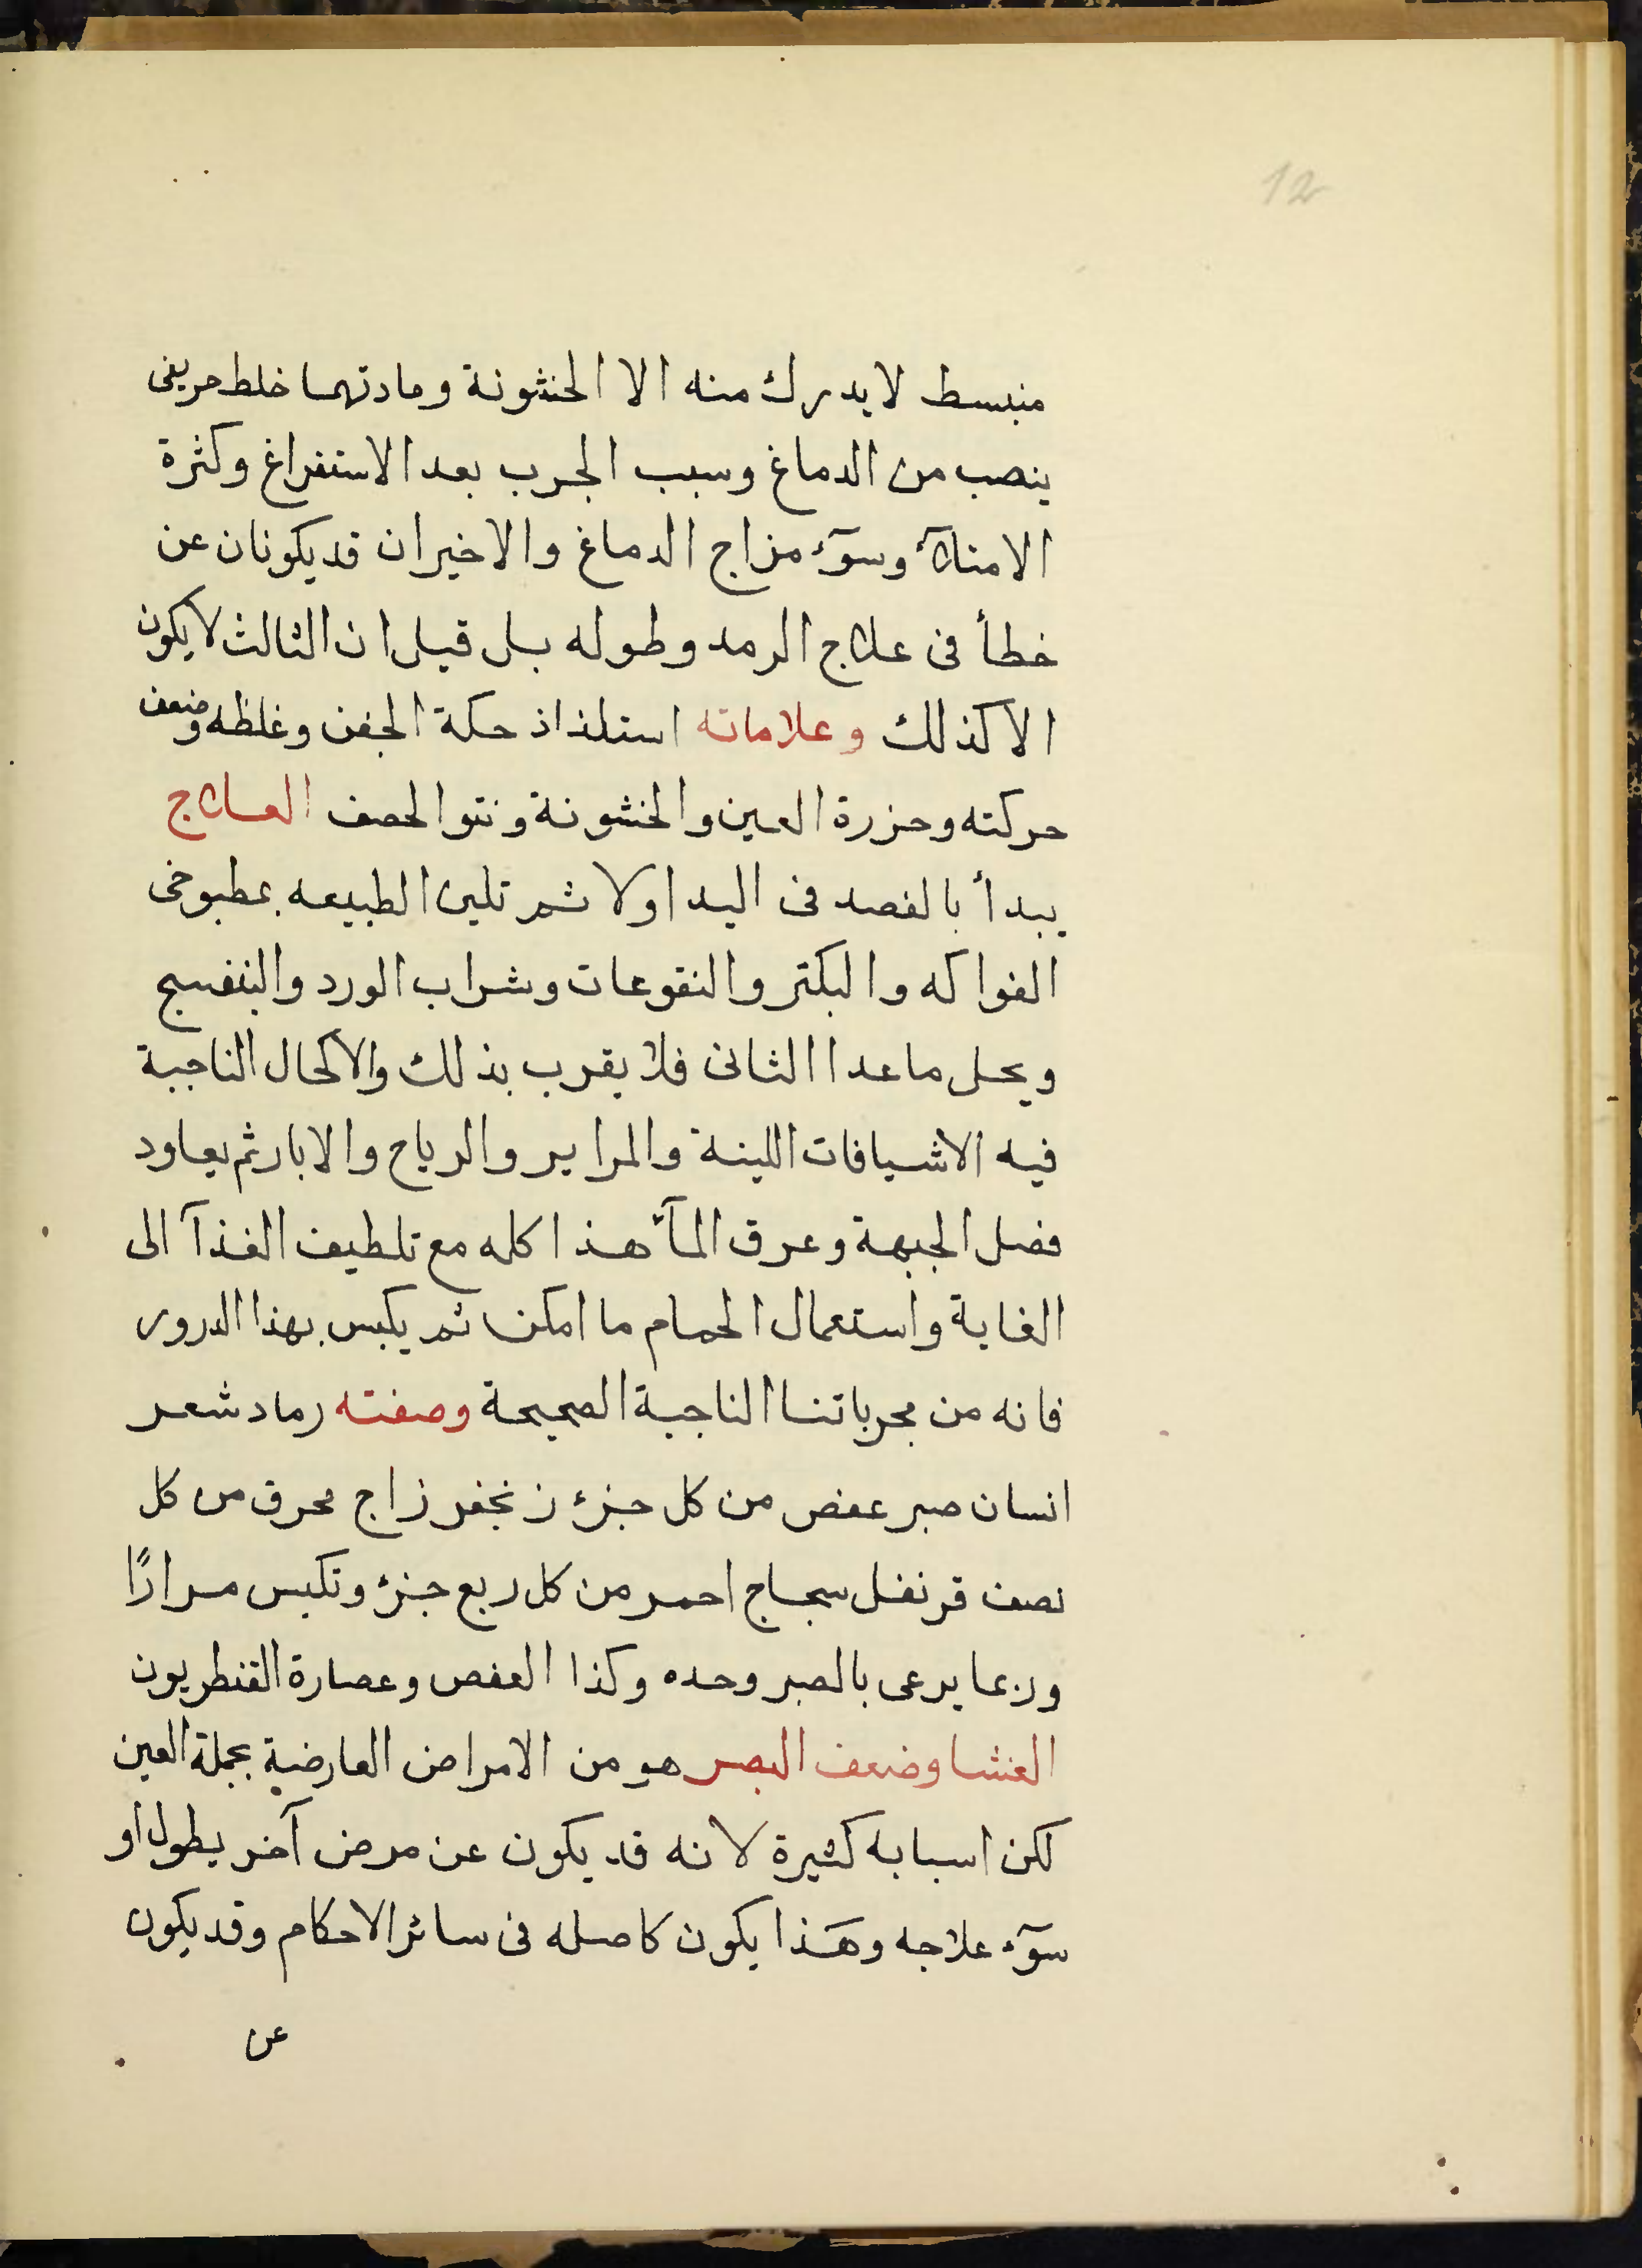 12
منبسط لا يدرك منه الا الخشونة ومادتهما خلط حريفى
ينصب من الدماغ وسبب الجرب بعد الاستفراغ وكثرة
الامتلآء وسوٓء مزاج الدماغ والاخيران قد يكونان عن
خطأ فى علاج الرمد وطوله بل قيل ان الثالث لا يكون
الا كذلك وعلاماته استلذاذ حكة الجفن وغلظه وضعف
حركته وحزرة العين والخشونة ونتو الحصف العلاج
يبدأ بالفصد فى اليد اولا ثم تلين الطبيعه بمطبوخى
الفواكه والبكتر والنقوعات وشراب الورد والبنفسج
ويحل ماعدا الثانى فلا يقرب بذلك والاكحال الناجبة
فيه الاشيافات اللينة والمراير والرياح والابار ثم يعاود
فصل الجبهة وعرق المآء هذا كله مع تلطيف الغذآ الى
الغاية واستعمال الحمام ما امكن ثم يكبس بهذا الدرور
فانه من مجرباتنا الناجبة الصحيحة وصفته رماد شعر
انسان صبر عفص من كل جزء زنجفر زاج محرق من كل
نصف قرنفل سجاج احمر من كل ربع جزء وتكبس مرارًا
وربما يرعى بالصبر وحده وكذا العفص وعصارة القنطريون
الغشا وضعف البصر هو من الامراض العارضية بجملة العين
لكن اسبابه كثيرة لانه قد يكون عن مرض آخر يطول او
سوٓء علاجه وهذا يكون كاصله فى سائر الاحكام وقد يكون
عن